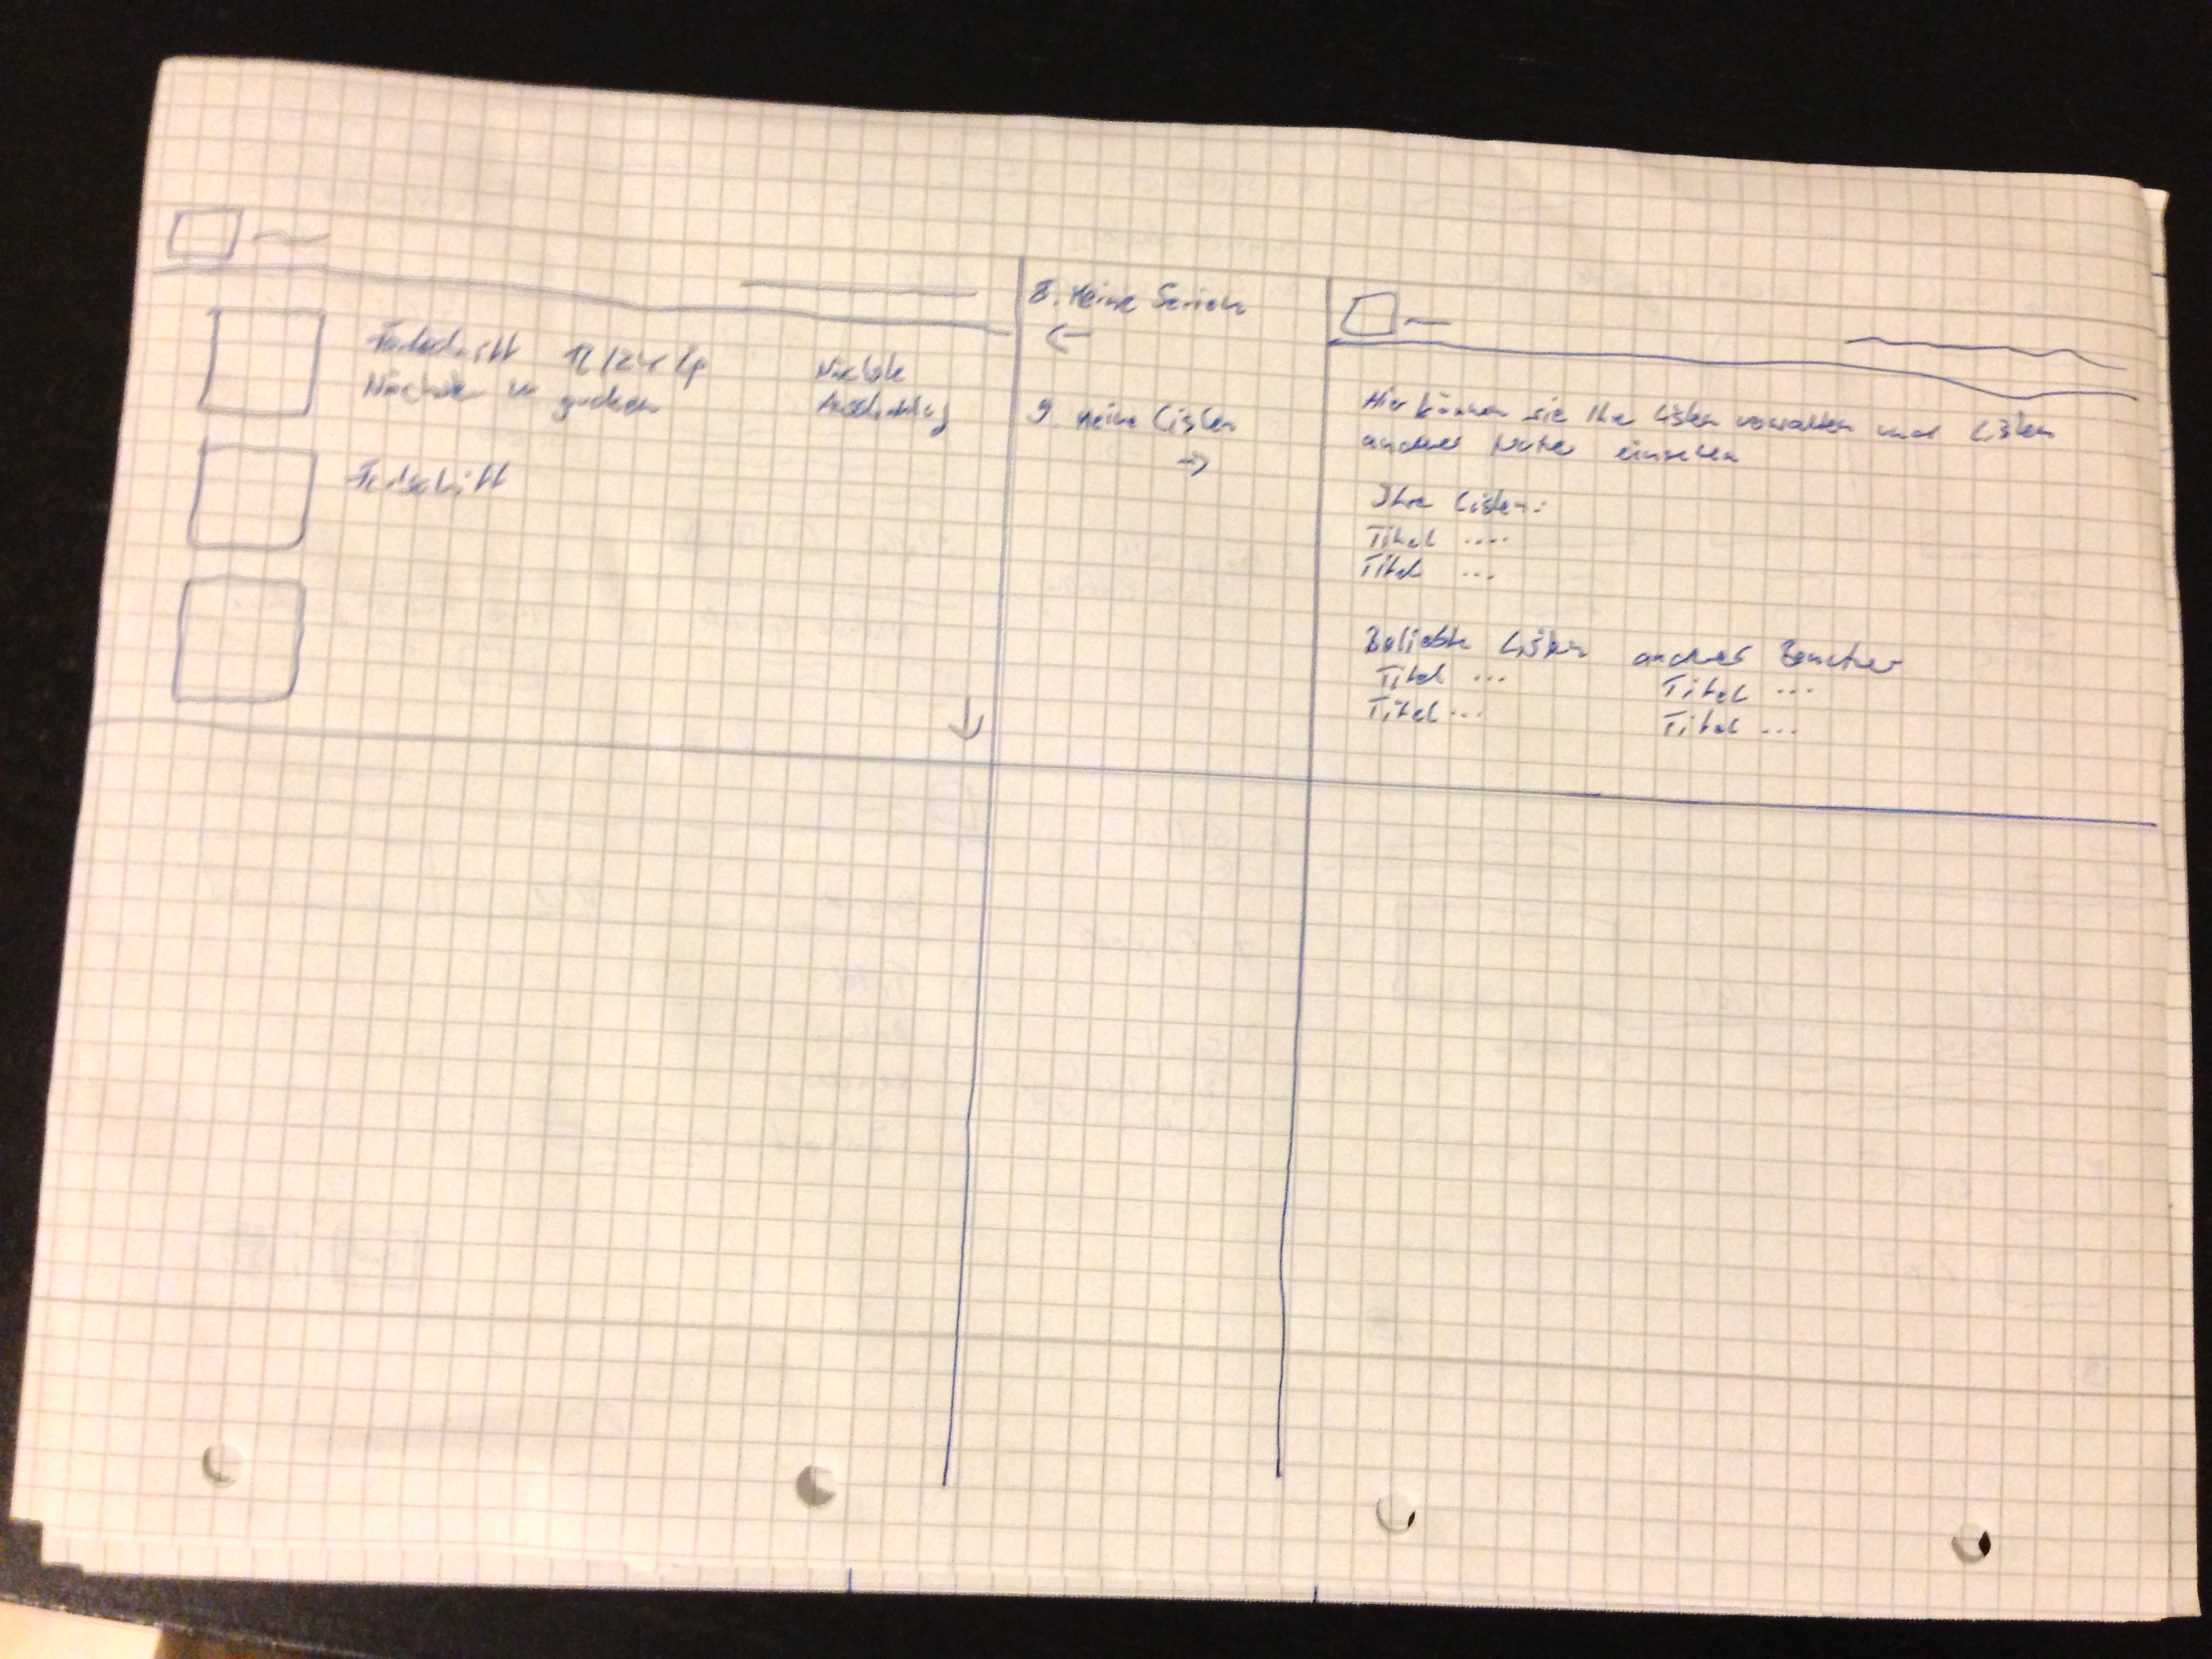 Fortschritt 12/24 Ep
Nächste zu gucken
Nächste
Ausstrahlung
Fortschritt
8. Meine Serien
←
9. meine Listen
→
Hier können sie Ihre Listen verwalten und Listen
anderer Nutzer einsehen
Ihre Listen:
Titel ....
Titel ...
Beliebte Listen anderer Benutzer
Titel ... Titel ...
Titel ... Titel ...